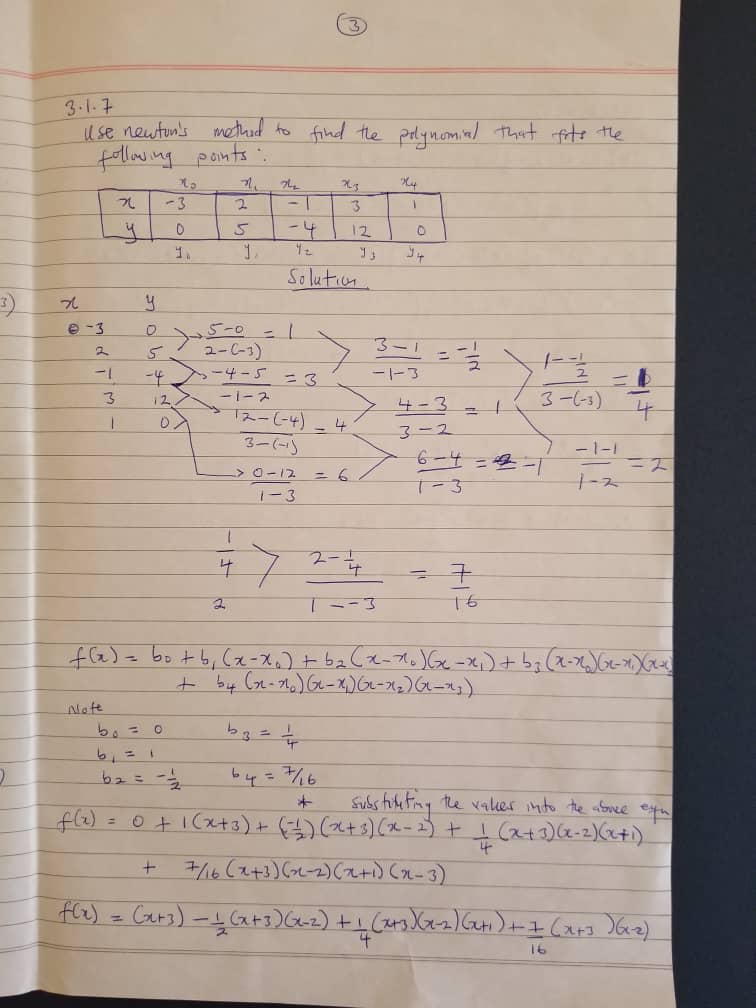 3
3.1.7
Use newton's method to find the polynomial that fits the
following points:
x₀ x₁ x₂ x₃ x₄
x -3 2 -1 3 1
y 0 5 -4 12 0
y₀ y₁ y₂ y₃ y₄
Solution
3) x y
-3 0 (5-0)/(2-(-3)) = 1 (3-1)/(-1-3) = -1/2 (1--1/2)/(3-(-3)) = 1/4
2 5 (-4-5)/(-1-2) = 3 (4-3)/(3-2) = 1 (-1-1)/(1-2) = 2
-1 -4 (12-(-4))/(3-(-1)) = 4 (6-4)/(1-3) = -1
3 12 (0-12)/(1-3) = 6
1 0
1/4 > (2-1/4)/(1--3) = 7/16
2
f(x) = b₀ + b₁(x-x₀) + b₂(x-x₀)(x-x₁) + b₃(x-x₀)(x-x₁)(x-x₂)
+ b₄(x-x₀)(x-x₁)(x-x₂)(x-x₃)
Note
b₀ = 0 b₃ = 1/4
b₁ = 1
b₂ = -1/2 b₄ = 7/16
* substituting the values into the above eqn
f(x) = 0 + 1(x+3) + (-1/2)(x+3)(x-2) + 1/4 (x+3)(x-2)(x+1)
+ 7/16 (x+3)(x-2)(x+1)(x-3)
f(x) = (x+3) - 1/2(x+3)(x-2) + 1/4(x+3)(x-2)(x+1) + 7/16 (x+3)(x-2)